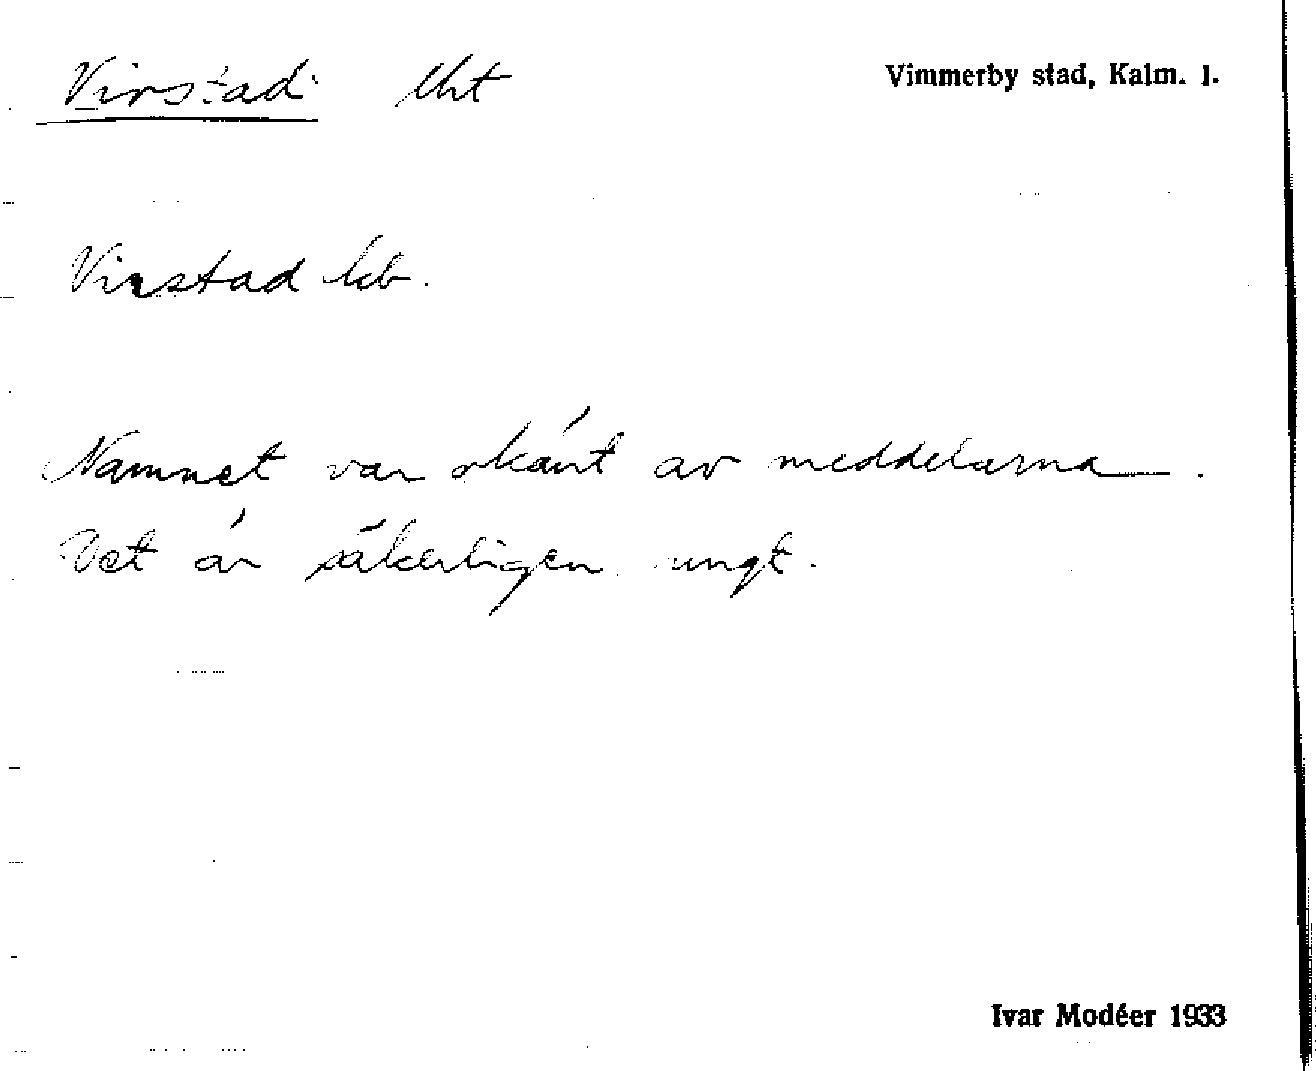 Virstad lht Vimmerby stad, Kalm. l.
Virstad kb.
Namnet var okänt av meddelarna.
Det är säkerligen ungt.
Ivar Modéer 1933